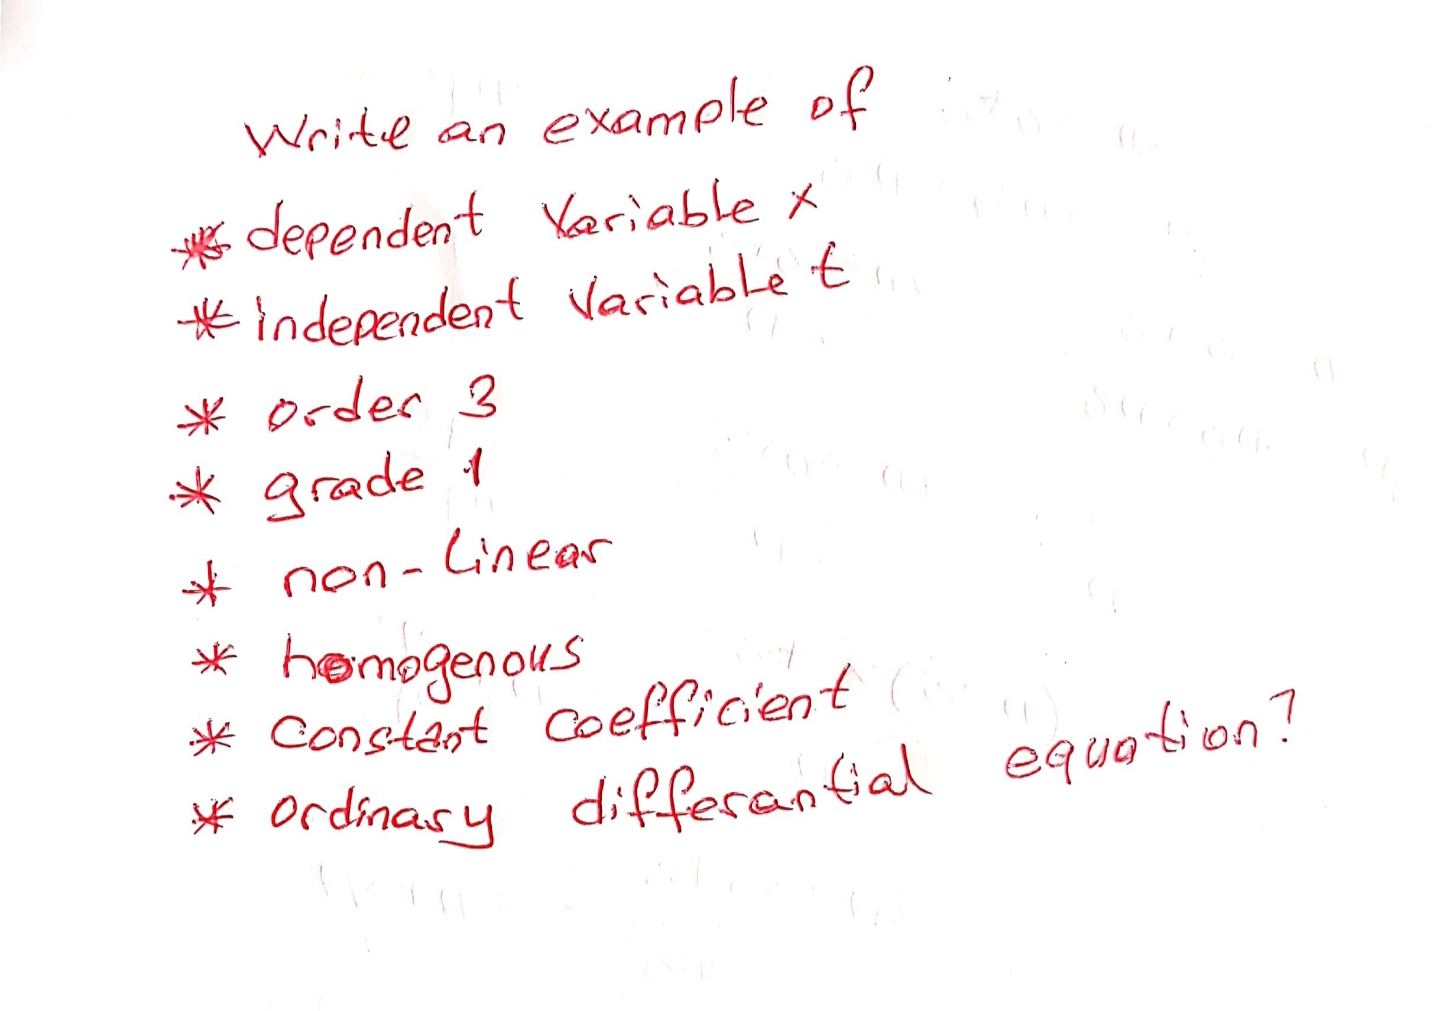 Write an example of
* dependent Variable x
* independent Variable t
* order 3
* grade 1
* non-Linear
* homogenous
* Constant coefficient
* ordinary differantial equation?